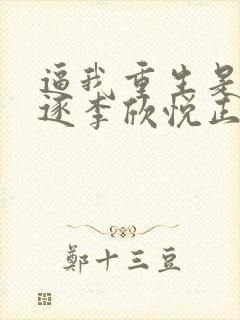 逼我重生是
逐李欣悦正
鄭十三豆